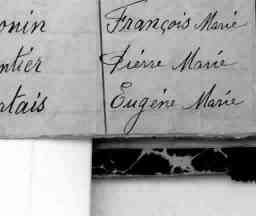 onin François Marie
ntier Pierre Marie
rtais Eugène Marie